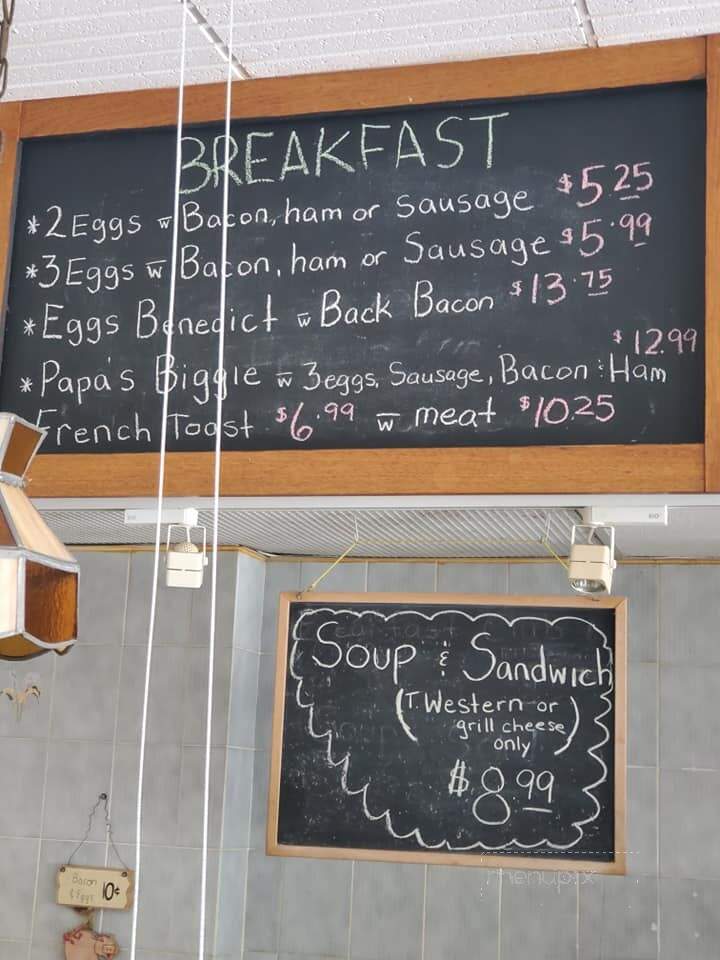 BREAKFAST
*2 Eggs w̄ Bacon, ham or sausage $5.25
*3 Eggs w̄ Bacon, ham or Sausage $5.99
*Eggs Benedict w̄ Back Bacon $13.75
$12.99
*Papa's Biggie w̄ 3eggs, Sausage, Bacon & Ham
French Toast $6.99 w̄ meat $10.25
Soup & Sandwich
(T. Western or
grill cheese
only)
$8.99
Bacon
& Eggs 10¢
menupix